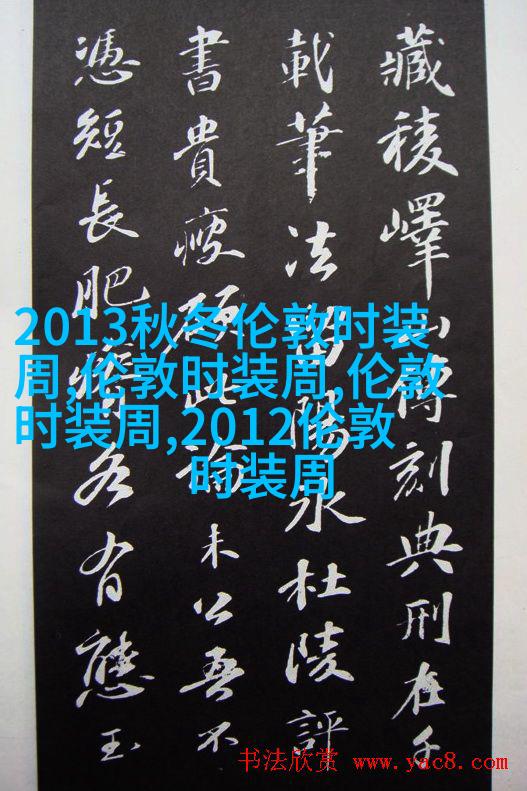 藏稜嶧山傳刻典刑在千
載筆法留陽氷杜陵評
書貴瘦硬此論未公吾不
憑短長肥瘠各有態玉
2013秋冬伦敦时装
周,伦敦时装周,伦敦
时装周,2012伦敦
时装周
书法欣赏 www.yac8.com